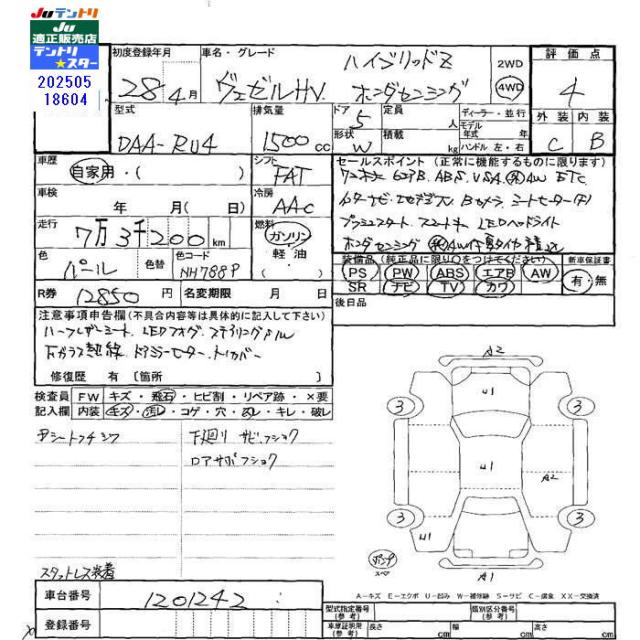 Juテントリ
Ju
適正販売店
テントリ
★スター
202505
18604
初度登録年月 車名・グレード ハイブリッドZ 2WD 評価点
28年4月 ヴェゼルHV. ホンダセンシング 4WD 4
型式 排気量 ドア 定員 ディーラー・並行 外装 内装
5 人 モデル 年式 年
DAA-RU4 1500cc 形状 W 積載 kg ハンドル 左・右 C B
車歴 自家用・( ) シフト FAT セールスポイント(正常に機能するものに限ります)
ETC
車検 年 月( 日) 冷房 AAC
ナビ Bカメラ シートヒーター(F)
走行 7万3千200km 燃料 ガソリン 軽油
プッシュスタート スマートキー LEDヘッドライト
ホンダセンシング
色 パール 色替 色コード NH788P 装備品(純正品に限り○をつけてください) 新車保証書
PS PW ABS エアB AW 有・無
SR ナビ TV カワ
R券 12850円 名変期限 月 日 後日品
注意事項申告欄(不具合内容等は具体的に記入して下さい)
ハーフレザーシート LEDフォグ ステアリング
熱線 ドアミラーヒーター
修復歴 有〔箇所 〕
検査員 FW キズ・飛石・ヒビ割・リペア跡・×要
記入欄 内装 キズ・汚レ・コゲ・穴・ キレ・破レ
下廻リ サビ・フショク
ロアサポフショク
A2
U1
3 3
U1 A2
3 3
U1
パンク
スペア
A1
スタットレス装着
A-キズ E-エクボ U-凹み W-補修跡 S-サビ C-腐食 XX-交換済
車台番号 1201242
登録番号
型式指定番号(参考) 類別区分番号(参考)
車庫証明用(参考) 長さ cm 幅 cm 高さ cm